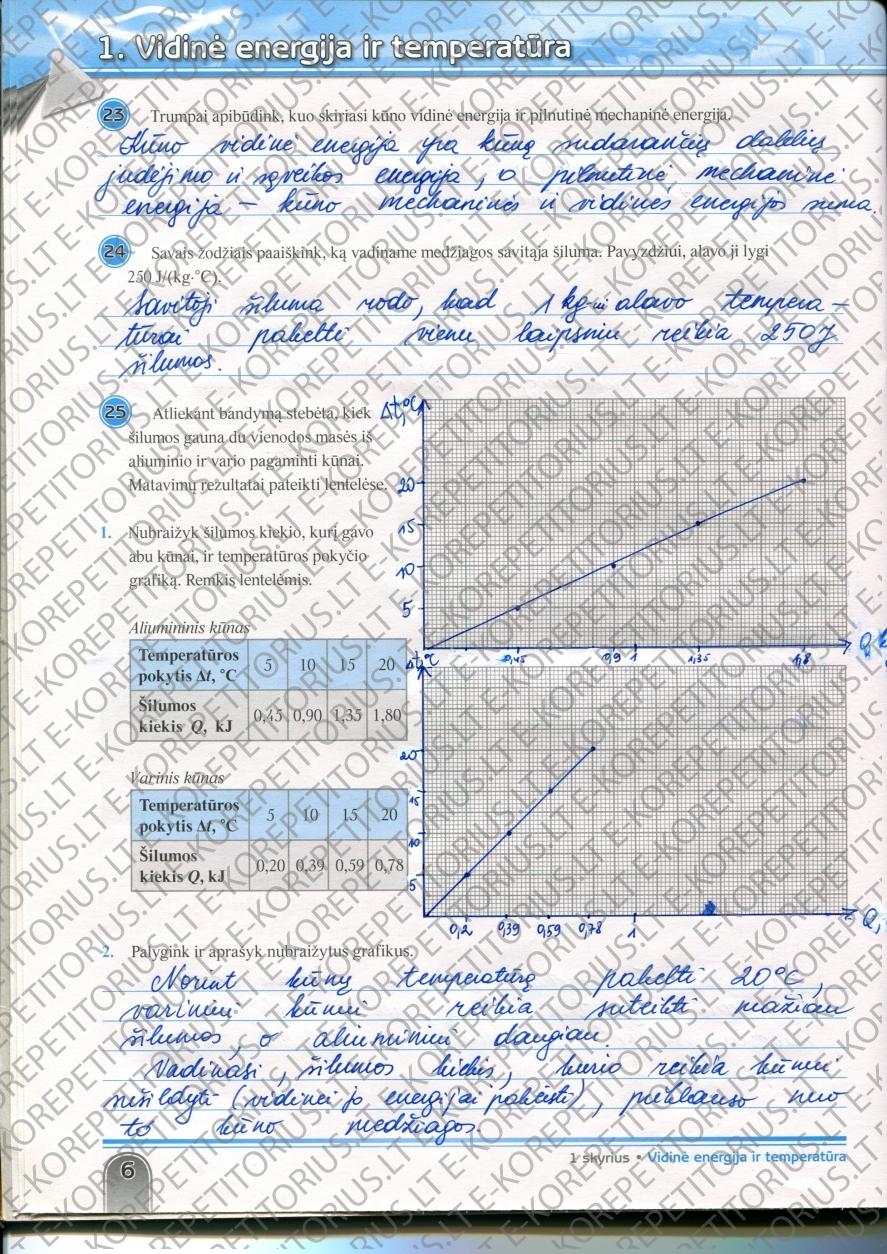 1. Vidinė energija ir temperatūra
23 Trumpai apibūdink, kuo skiriasi kūno vidinė energija ir pilnutinė mechaninė energija.
Kūno vidinė energija yra kūną sudarančių dalelių
judėjimo ir sąveikos energija, o pilnutinė mechaninė
energija – kūno mechaninės ir vidinės energijos suma.
24 Savais žodžiais paaiškink, ką vadiname medžiagos savitąja šiluma. Pavyzdžiui, alavo ji lygi
250 J/(kg·°C).
Savitoji šiluma rodo, kad 1 kg-ui alavo tempera-
tūrai pakelti vienu laipsniu reikia 250 J
šilumos.
25 Atliekant bandymą stebėta, kiek
šilumos gauna du vienodos masės iš
aliuminio ir vario pagaminti kūnai.
Matavimų rezultatai pateikti lentelėse.
1. Nubraižyk šilumos kiekio, kurį gavo
abu kūnai, ir temperatūros pokyčio
grafiką. Remkis lentelėmis.
Δt,°C
20
15
10
5
0,45 0,9 1 1,35 1,8
Q, k
Aliumininis kūnas
Temperatūros pokytis Δt, °C 5 10 15 20
Šilumos kiekis Q, kJ 0,45 0,90 1,35 1,80
Varinis kūnas
Temperatūros pokytis Δt, °C 5 10 15 20
Šilumos kiekis Q, kJ 0,20 0,39 0,59 0,78
Δt,°C
20
15
10
5
0,2 0,39 0,59 0,78 1
Q,
2. Palygink ir aprašyk nubraižytus grafikus.
Norint kūnų temperatūrą pakelti 20°C,
variniui kūnui reikia suteikti mažiau
šilumos, o aliumininiui daugiau.
Vadinasi, šilumos kiekis, kurio reikia kūnui
sušildyti (vidinei jo energijai pakeisti), priklauso nuo
to kūno medžiagos.
6
1 skyrius • Vidinė energija ir temperatūra
E-KOREPETITORIUS.LT